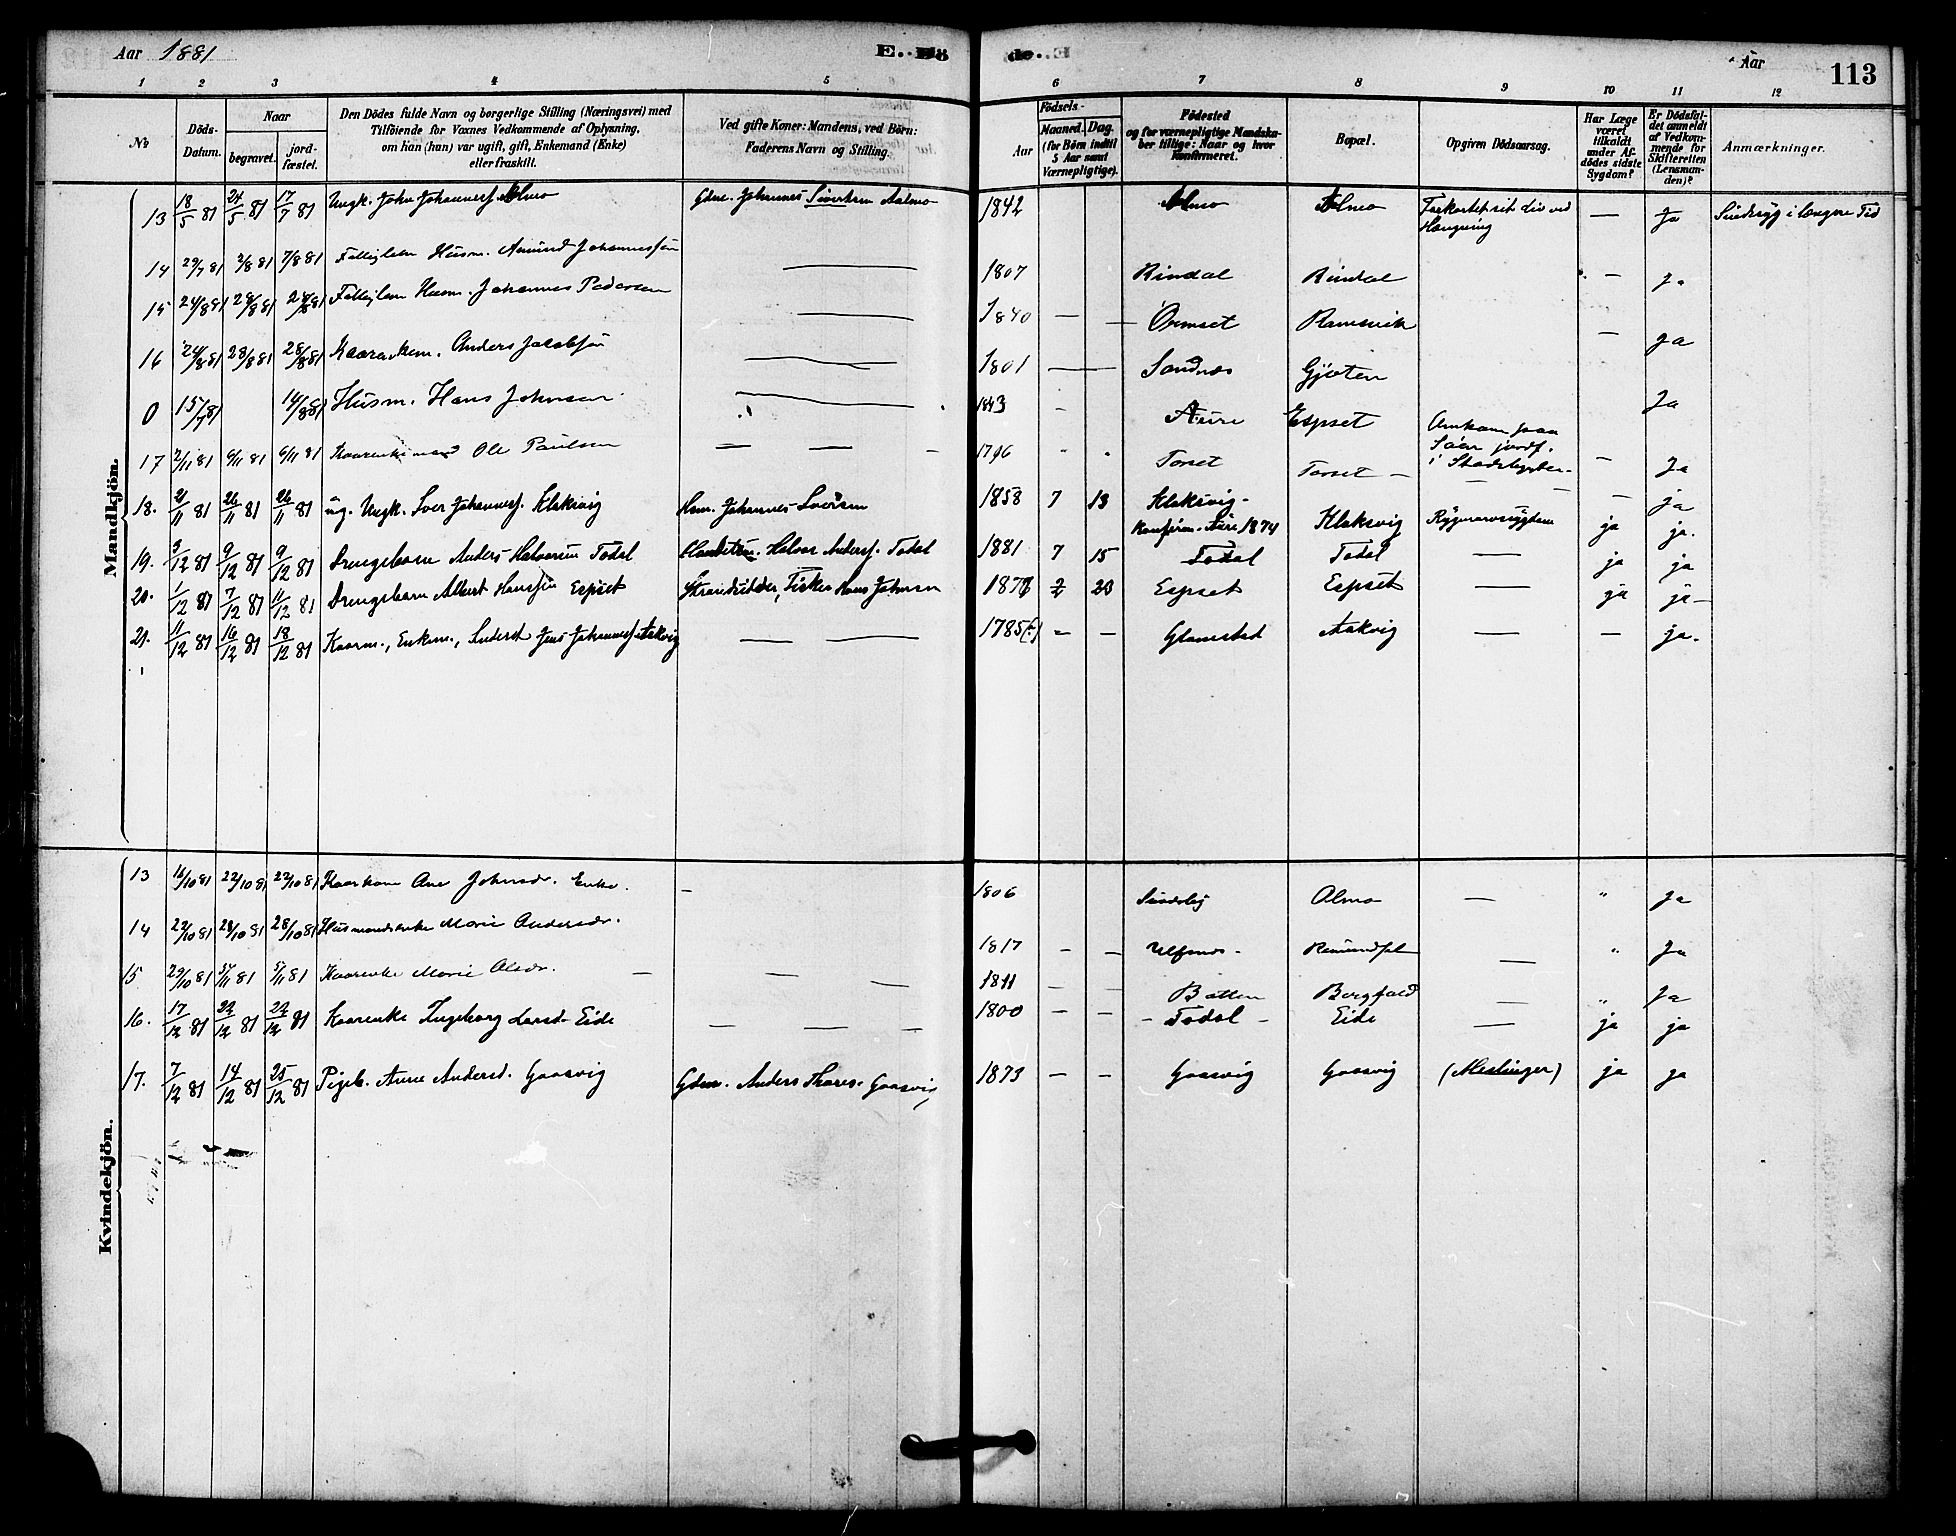 Aar 1881
E. Dö
de. E.
Aar
113
1 2 3 4 5 6 7 8 9 10 11 12
No
Döds-Datum.
Naar
begravet.
jord-fæstet.
Den Dödes fulde Navn og borgerlige Stilling (Næringsvei) med
Tilföiende for Voxnes Vedkommende af Oplysning,
om han (hun) var ugift, gift, Enkemand (Enke)
eller fraskilt.
Ved gifte Koner: Mandens, ved Börn:
Faderens Navn og Stilling.
Födsels-
Aar
Maaned. Dag.
(for Börn indtil
5 Aar samt
Værnepligtige).
Födested
og for værnepligtige Mandska-
ber tillige: Naar og hvor
Konfirmeret.
Bopæl.
Opgiven Dödsaarsag.
Har Læge
været
tilkaldt
under Af-
dödes sidste
Sygdom?
Er Dödsfal-
det anmeldt
af Vedkom-
mende for
Skifteretten
(Lensman-
den)?
Anmærkninger.
Mandkjön.
13 18/5 81 24/5 81 17/7 81 Ungk. John Johannesf. Almo Gdm. Johannes Sivertsen Aalmo 1842 Almo Almo Forkortet sit Liv ved Hængning — Ja Sindssyg i længere Tid
14 29/7 81 2/8 81 7/8 81 Fattiglem Husm. Amund Johannessön — 1807 Rindal Rindal — Ja
15 24/8 81 28/8 81 28/8 81 Fattiglem Husm. Johannes Pedersen — 1840 — — Ormset Ramsvik — ja
16 24/8 81 28/8 81 28/8 81 Kaarenkem. Anders Jacobsön — 1801 — Sandnes Gjöten Ja
0 15/7 81 14/8 81 Husm. Hans Johnsen — 1843 - Aure Espset Omkom paa Söen jordf. i Stadsbygden
17 2/11 81 6/11 81 6/11 81 Kaarenkemand Ole Paulsen — — 1796 " " Torset Torset — — Ja
18. 21/11 81 26/11 81 26/11 81 ug. Ungk. Iver Johannesf. Klaksvig Hsm. Johannes Iversen 1858 7 13 Klaksvig - Konfirm. Aure 1874 Klaksvig Rygmarvssygdom ja ja.
19. 3/12 81 9/12 81 9/12 81 Drengebarn Anders Halvorsen Todal Halvor Andersf. Todal 1881 7 15 Todal Todal — ja ja
20. 1/12 81 7/12 81 11/12 81 Drengebarn Albert Hanssön Espset Strandsidder, Fisker Hans Johnsen 1878 2 20 Espset Espset — ja ja —
21. 11/12 81 16/12 81 18/12 81 Kaarm., Enkem., Jens Johannesf. Aakvig — — 1785(?) — — Glamstad Aakvig — — ja.
Kvindekjön.
13 16/10 81 22/10 81 22/10 81 Kaarkone Ane Johnsdr. Enke. — 1806 Almo — " Ja
14 22/10 81 28/10 81 28/10 81 Husmandsenke Marie Andersdr. 1817 — — Ulfsnes - — " Ja
15 29/10 81 5/11 81 5/11 81 Kaarenke Marie Olsdr. — — — 1811 — — Botten Bergfald — " Ja
16. 17/12 81 22/12 81 22/12 81 Kaarenke Ingeborg Larsd. Eide — — — 1800 — — Todal Eide — ja ja
17. 7/12 81 14/12 81 25/12 81 Pigeb. Anne Andersd. Gaasvig Gdm. Anders Thores. Gaasvig 1873 — — Gaasvig Gaasvig (Meslinger) ja ja